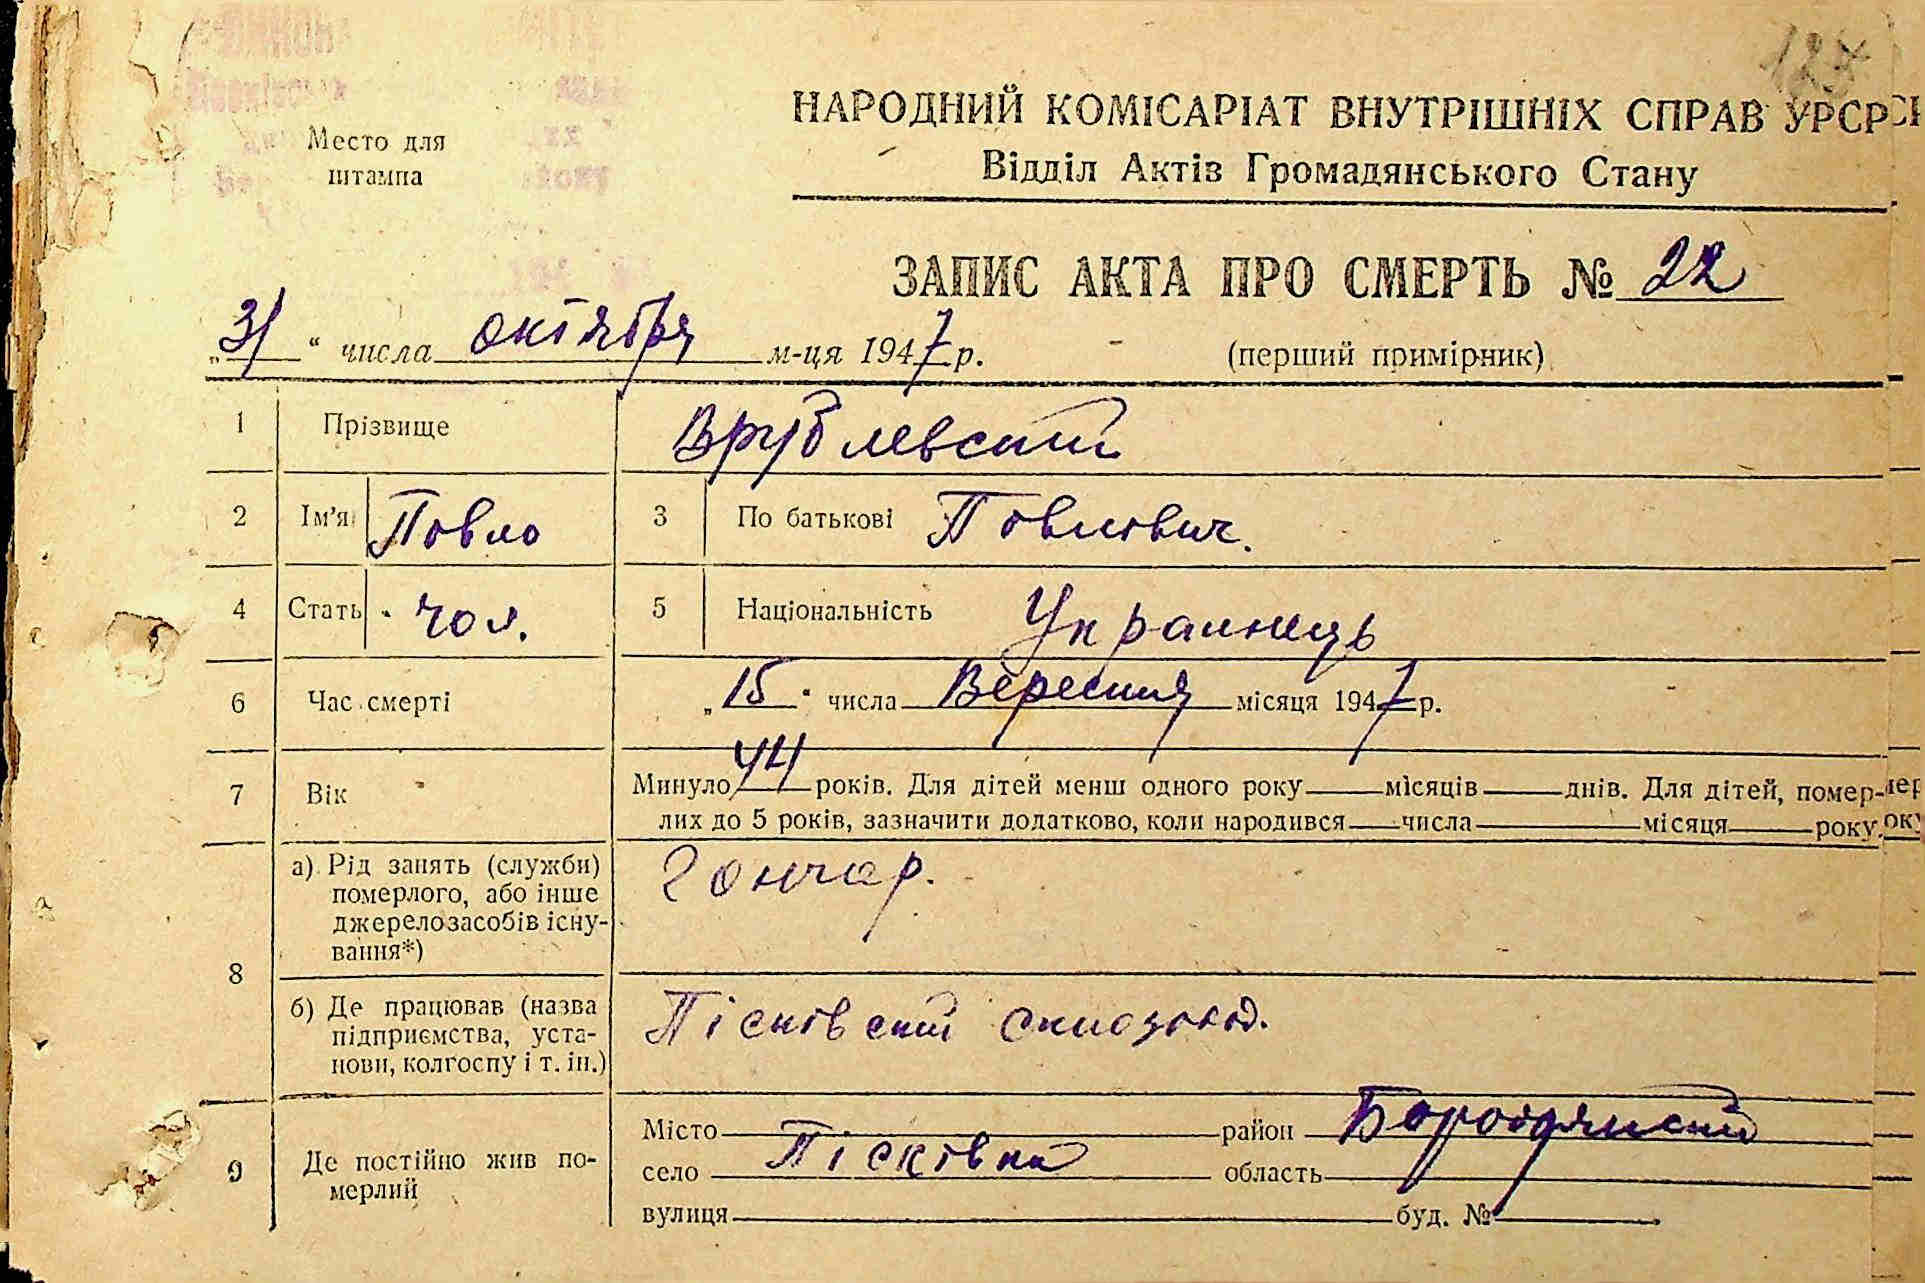 127
НАРОДНИЙ КОМІСАРІАТ ВНУТРІШНІХ СПРАВ УРСР
Место для штампа
Відділ Актів Громадянського Стану
ЗАПИС АКТА ПРО СМЕРТЬ № 22
„31“ числа октября м-ця 1947 р. (перший примірник)
1 Прізвище Врублевский
2 Ім'я Повло 3 По батькові Повлович.
4 Стать чол. 5 Національність Украинець
6 Час смерті „15“ числа Вересния місяця 1947 р.
7 Вік Минуло 44 років. Для дітей менш одного року місяців днів. Для дітей, помер-
лих до 5 років, зазначити додатково, коли народився числа місяця року.
8 а) Рід занять (служби) Гончар.
померлого, або інше
джерело засобів існу-
вання*)
б) Де працював (назва Пісківский склозовод.
підприємства, уста-
нови, колгоспу і т. ін.)
9 Де постійно жив по-
мерлий
Місто район Бородянский
село Пісківка область
вулиця буд. №